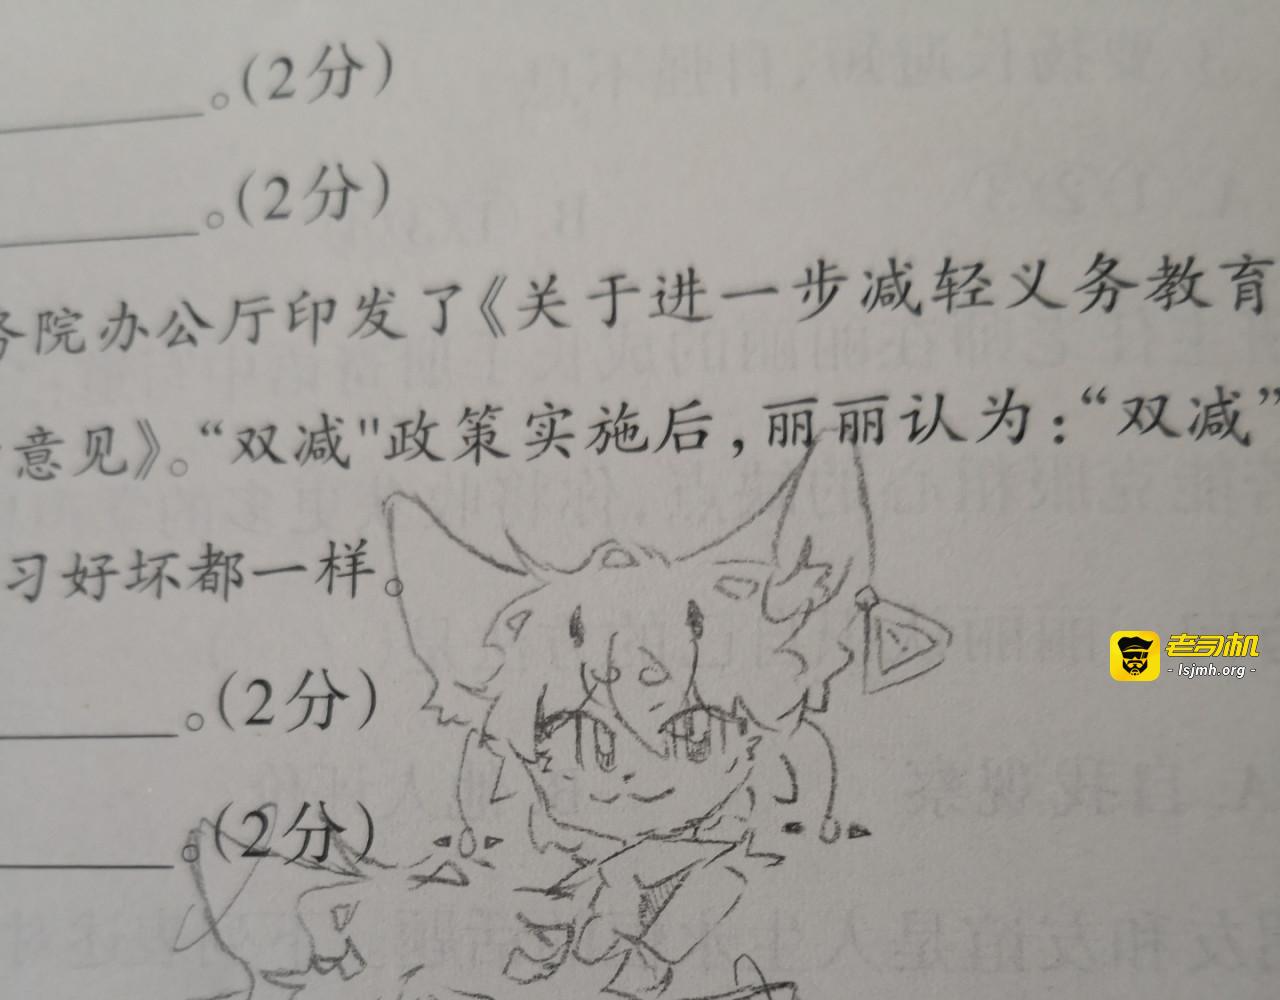 。(2分)
。(2分)
务院办公厅印发了《关于进一步减轻义务教育
意见》。“双减"政策实施后,丽丽认为:“双减”
习好坏都一样。
。(2分)
。(2分)
老司机
- lsjmh.org -